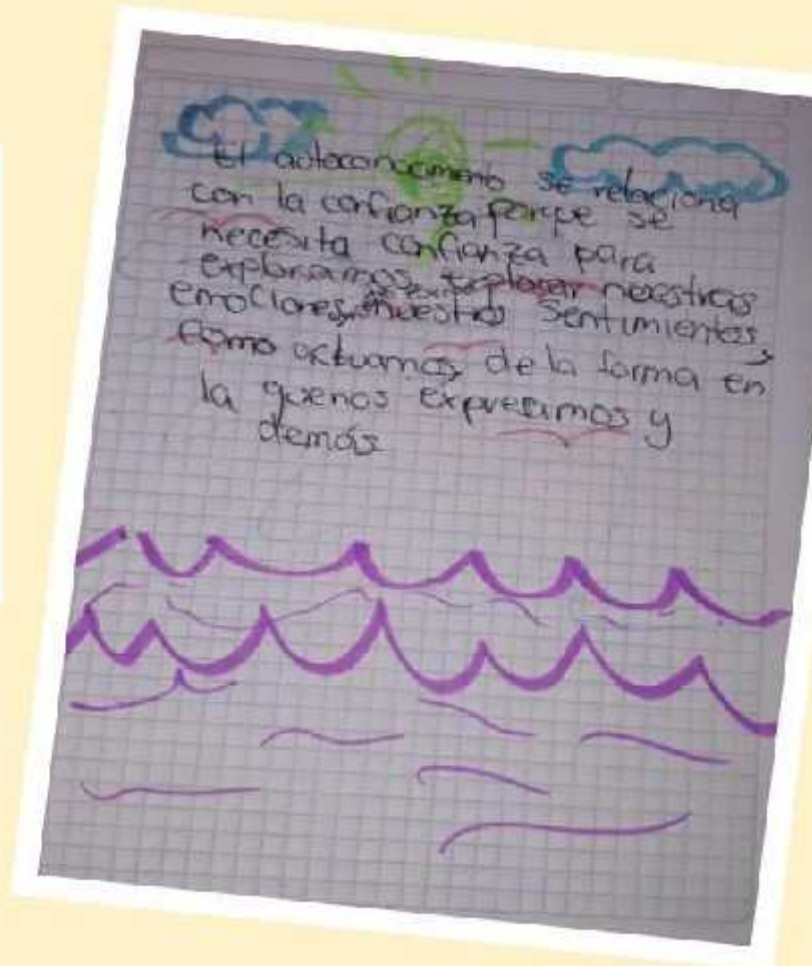 El autoconocimento se relaciona
con la confianza porque se
necesita confianza para
explorarnos, explorar nuestras
emociones, nuestros sentimientos,
como actuamos, de la forma en
la que nos expresamos y
demás